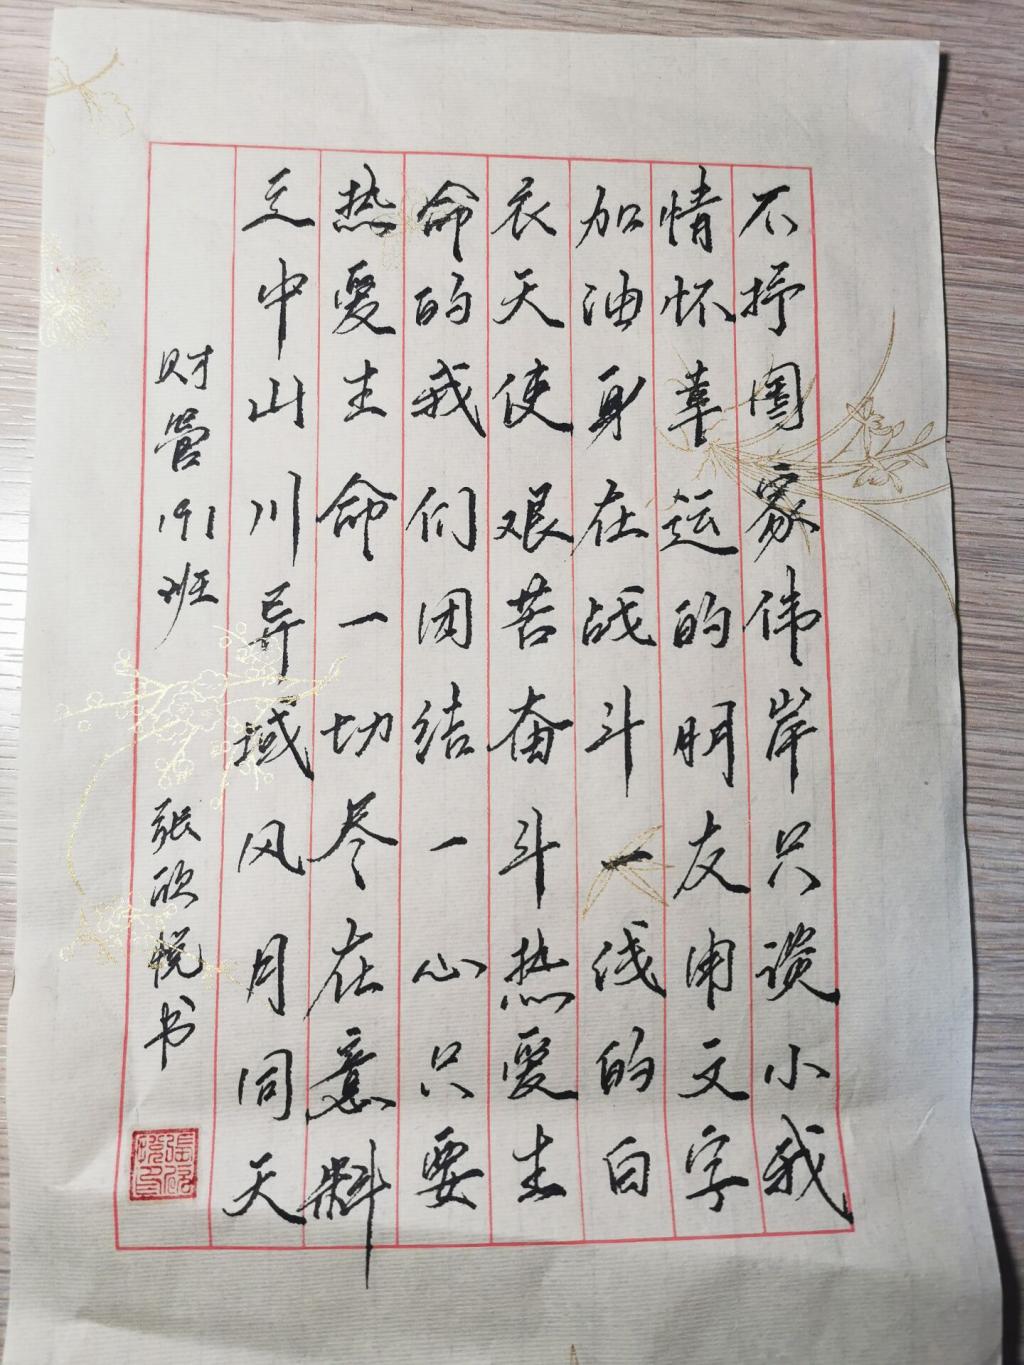 不抒国家伟岸只谈小我
情怀幸运的朋友用文字
加油身在战斗一线的白
衣天使艰苦奋斗热爱生
命的我们团结一心只要
热爱生命一切尽在意料
之中山川异域风月同天
财管191班 张欣悦书